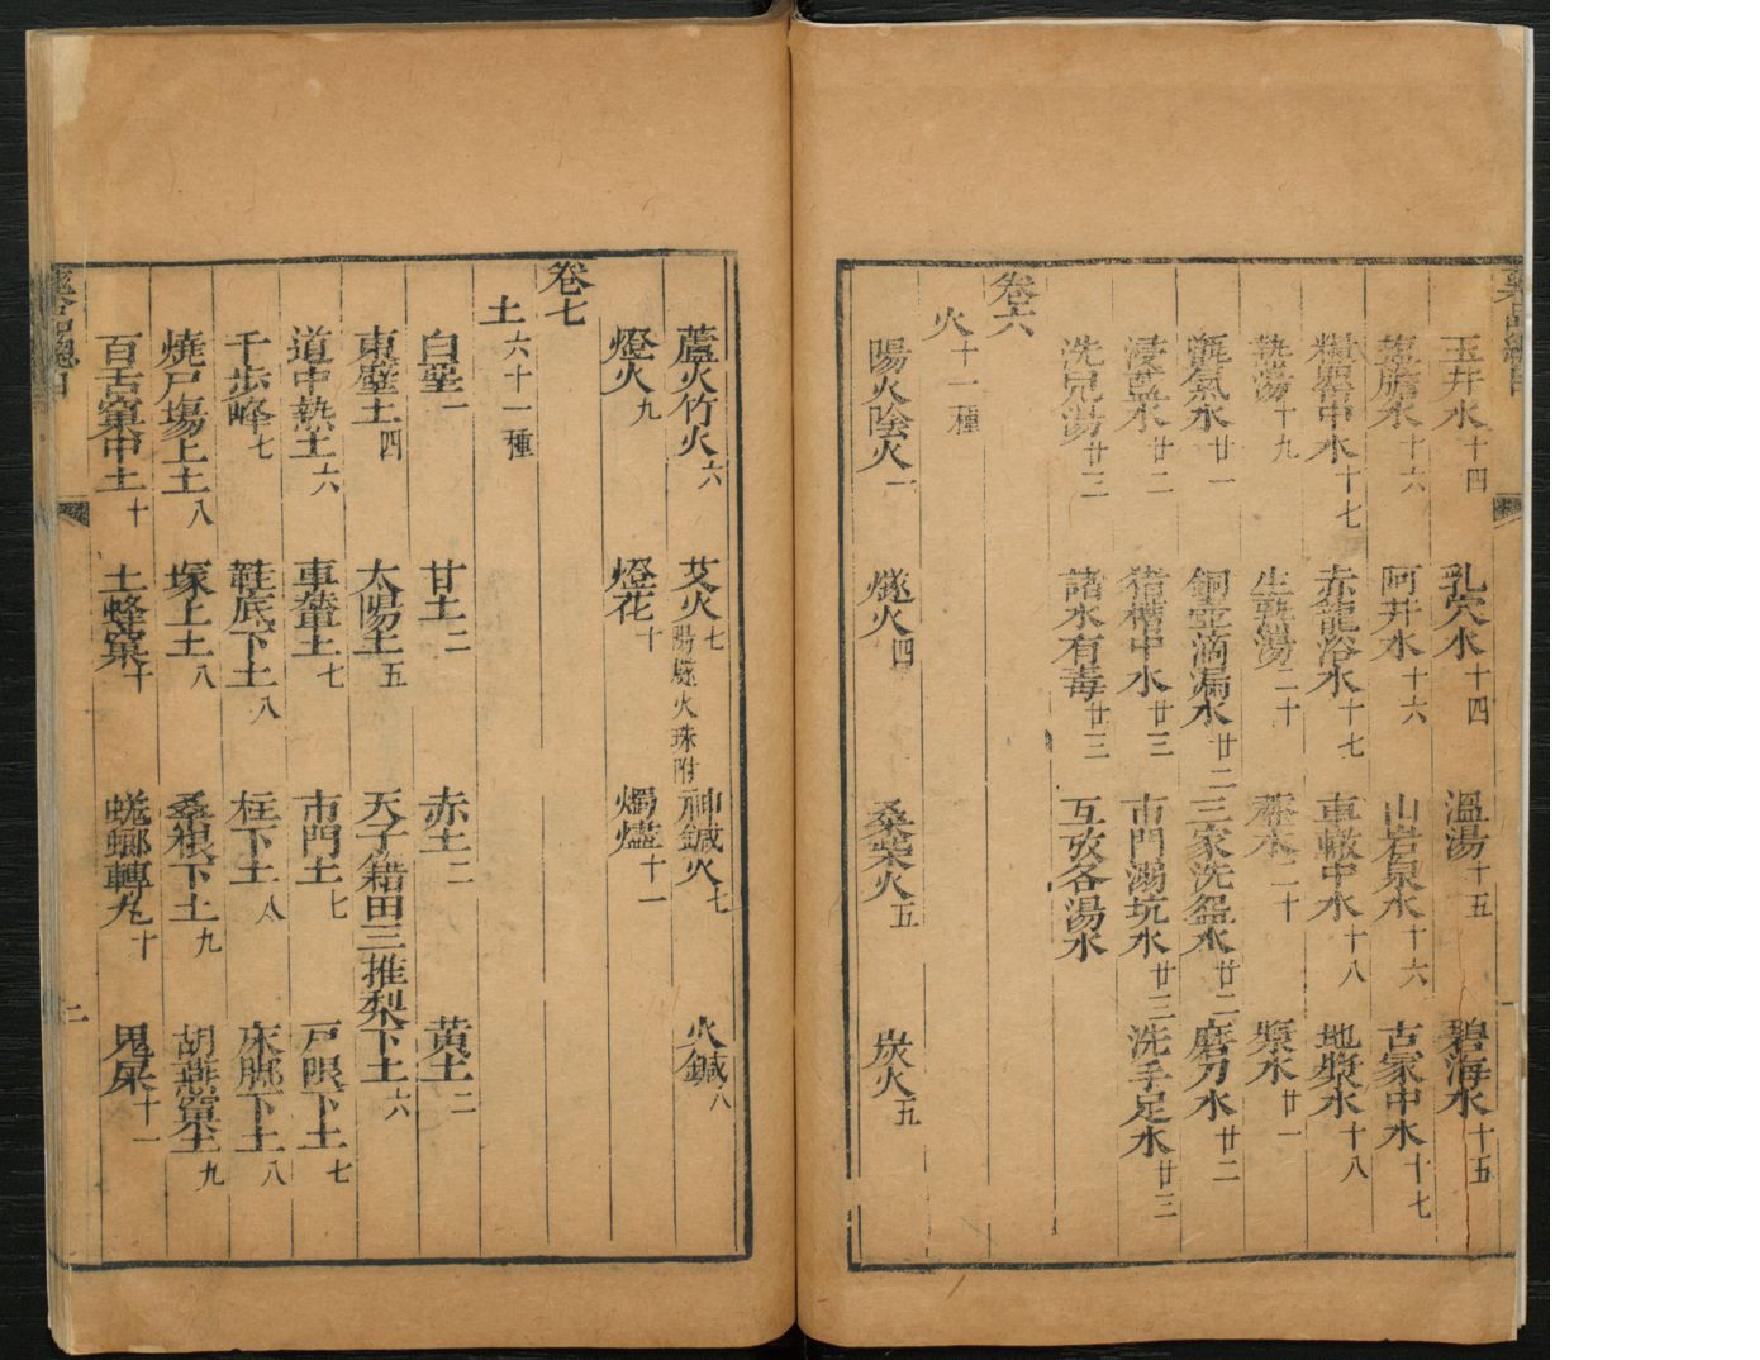 玉井水十四 乳穴水十四 溫湯十五 碧海水十五
鹽膽水十六 阿井水十六 山岩泉水十六 古冢中水十七
糧罌中水十七 赤龍浴水十七 車轍中水十八 地漿水十八
熱湯十九 生熟湯二十 齏水二十 漿水廿一
甑氣水廿一 銅壺滴漏水廿二 三家洗盌水廿二 磨刀水廿二
浸藍水廿二 猪槽中水廿三 市門溺坑水廿三 洗手足水廿三
洗兒湯廿三 諸水有毒廿三 互攷各湯水
卷六
火十一種
陽火陰火一 燧火四 桑柴火五 炭火五
蘆火竹火六 艾火七陽燧火珠附 神鍼火七 火鍼八
燈火九 燈花十 燭燼十一
卷七
土六十一種
白堊一 甘土二 赤土二 黄土二
東壁土四 太陽土五 天子籍田三推犂下土六
道中熱土六 車輦土七 市門土七 戸限下土七
千步峰七 鞋底下土八 柱下土八 床腳下土八
燒尸塲上土八 塚上土八 桑根下土九 胡燕窠土九
百舌窠中土十 土蜂窠十 蜣蜋轉丸十 鬼屎十一
二